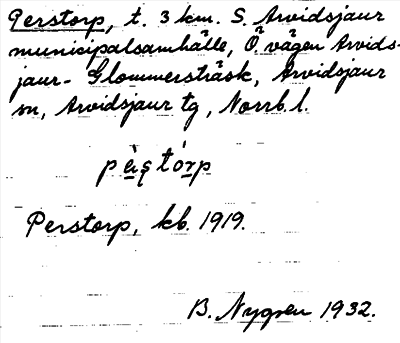 Perstorp, t. 3 km. S. Arvidsjaur
municipalsamhälle, Ö. vägen Arvids-
jaur - Glommersträsk, Arvidsjaur
sn, Arvidsjaur tg, Norrb. l.
Perstorp, kb. 1919.
B. Nygren 1932.